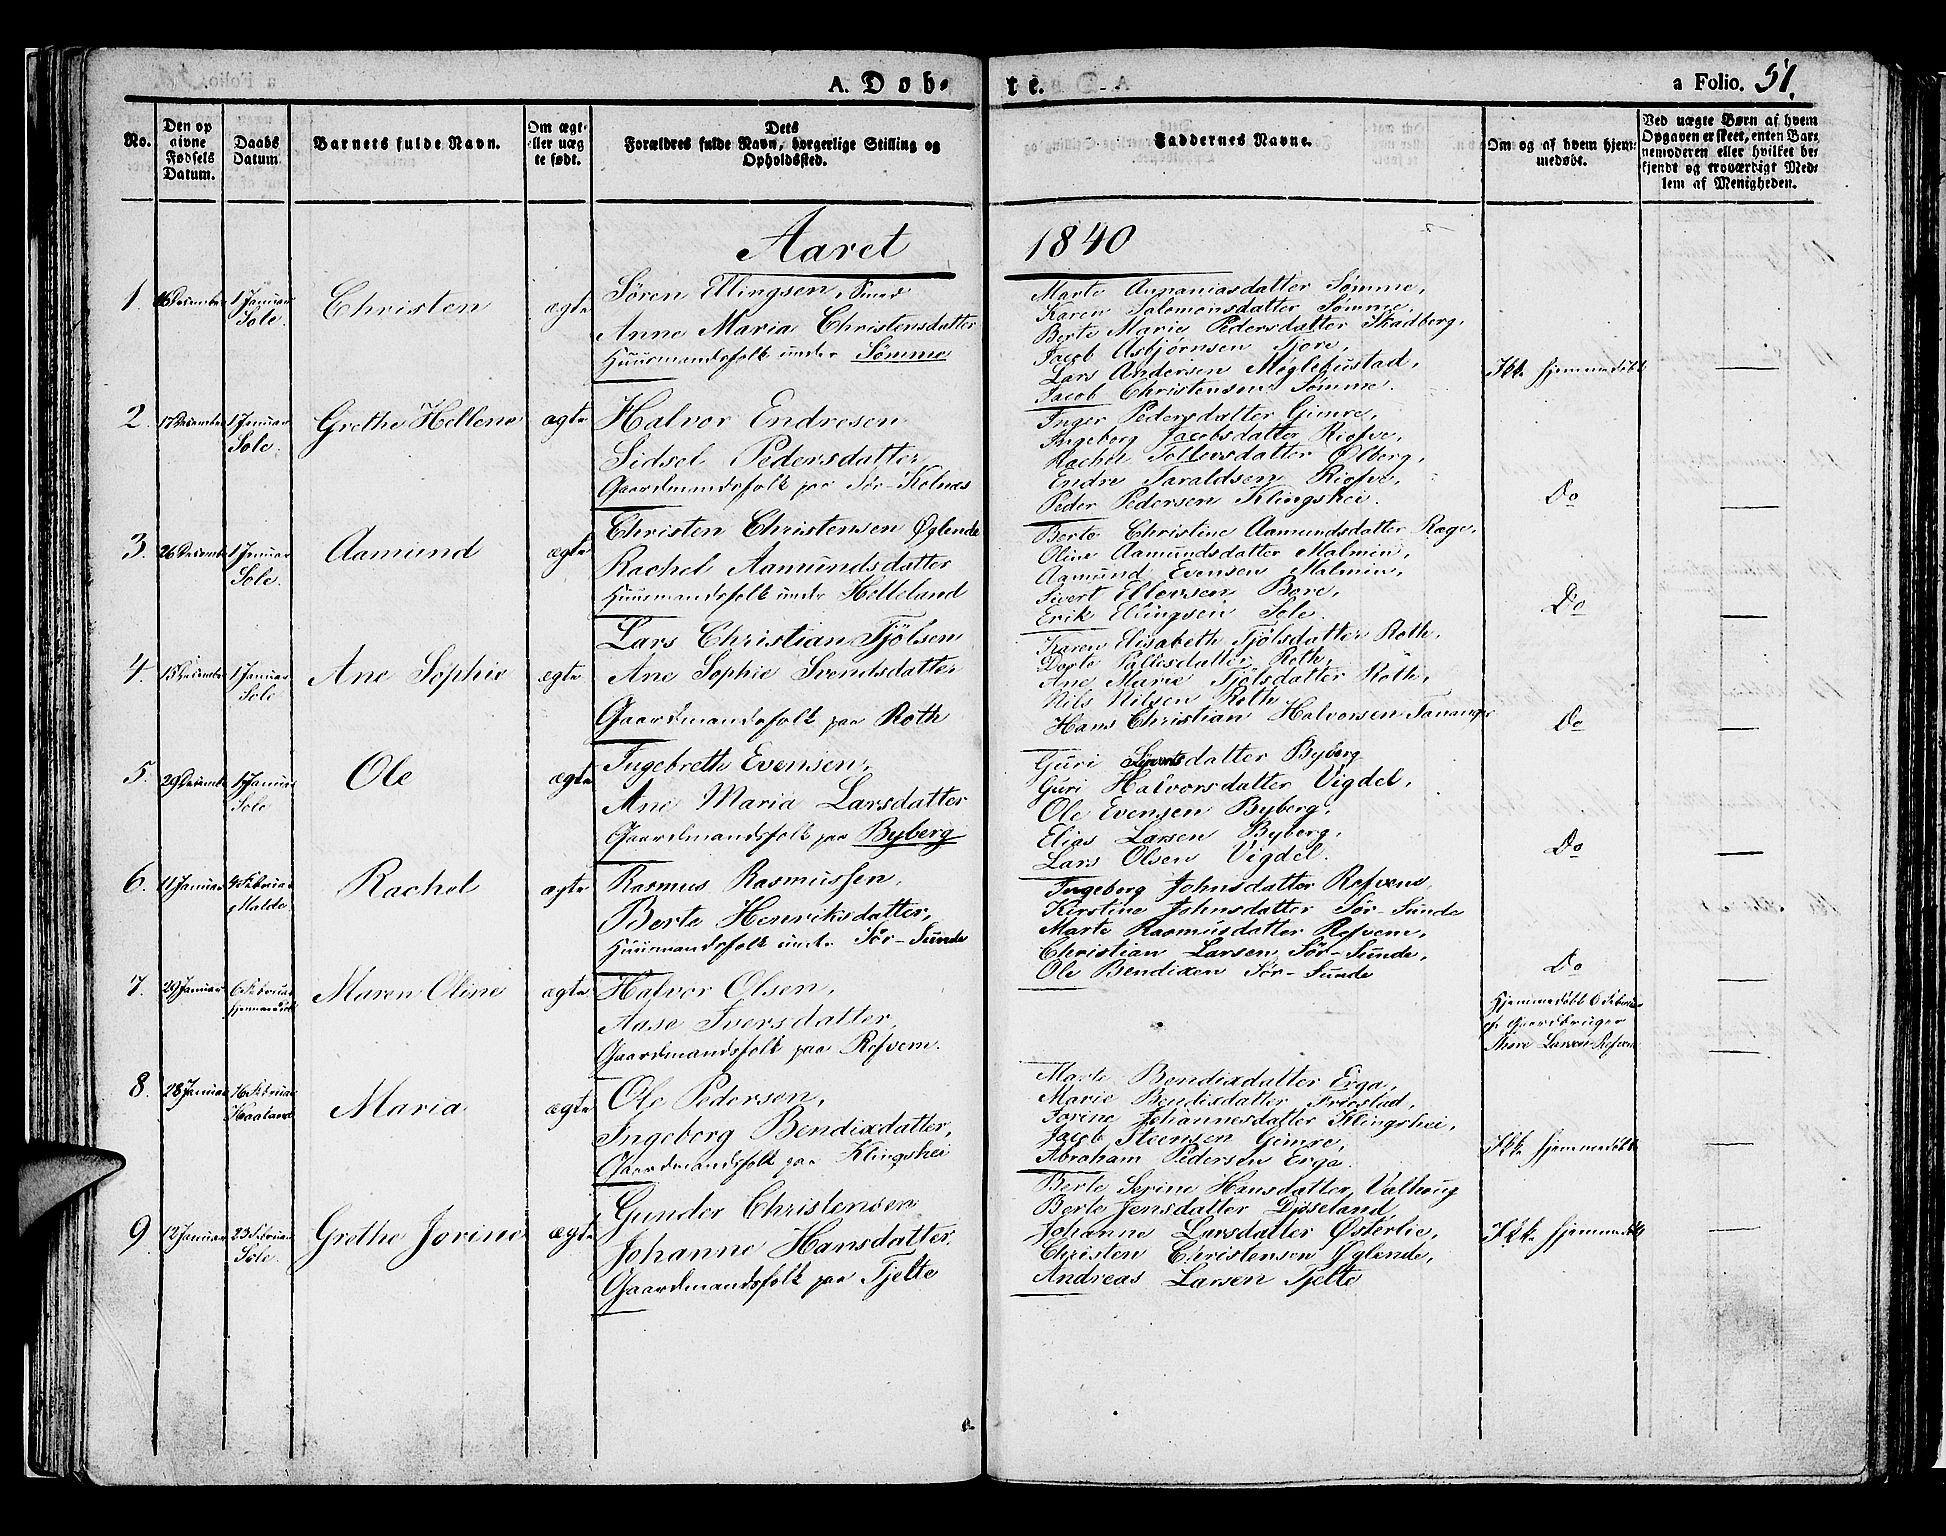 A. Døb-
te.
a Folio. 51.
No.
Den op
givne
Fødsels
Datum.
Daabs
Datum.
Barnets fulde Navn.
Om ægt-
eller uæg
te født.
Dets
Forældres fulde Navn, borgerlige Stilling og
Opholdssted.
Faddernes Navne.
Om og af hvem hjem-
medøbt.
Ved uægte Børn af hvem
Opgaven er skeet, enten Bar-
nemoderen eller hvilket be-
kjendt og troværdigt Med-
lem af Menigheden.
Aaret 1840
1. 16 December 1 Januar
Sole.
Christen
ægte
Søren Ellingsen, Smed
Anne Maria Christensdatter
Huusmandsfolk under Sømme
Marte Annaniasdatter Sømme,
Karen Salomonsdatter Sømme,
Berte Marie Pedersdatter Skadberg,
Jacob Asbjørnsen Tjore,
Lars Andersen Møglebustad,
Jacob Christensen Sømme.
Ikke hjemmedøbt
2. 17 December 1 Januar
Sole.
Grethe Hellene
ægte
Halvor Endresen
Sidsel Pedersdatter
Gaardmandsfolk paa Sør-Kolnæs
Inger Pedersdatter Gimre,
Ingeborg Jacobsdatter Riefve,
Rachel Tollevsdatter Ølberg,
Endre Taraldsen Riefve,
Peder Pedersen Klingshei.
Do
3. 26 December 1 Januar
Sole.
Aamund
ægte
Christen Christensen Øglende
Rachel Aamundsdatter
Huusmandsfolk under Helleland
Berte Christine Aamundsdatter Rage,
Oline Aamundsdatter Malmin,
Aamund Evensen Malmin,
Sivert Ellevsen Bore,
Erik Ellingsen Sole.
Do
4. 15 December 1 Januar
Sole
Ane Sophie
ægte
Lars Christian Tjölsen
Ane Sophie Svendsdatter
Gaardmandsfolk paa Roth
Karen Elisabeth Tjölsdatter Roth,
Dorte Pallesdatter Roth,
Ane Marie Tjölsdatter Roth,
Nils Nilsen Roth
Hans Christian Halvorsen Tananger
Do
5. 29 December 1 Januar
Sole
Ole
ægte
Ingebreth Evensen,
Ane Maria Larsdatter
Gaardmandsfolk paa Byberg
Guri datter Byberg
Guri Halvorsdatter Vigdel,
Ole Evensen Byberg,
Elias Larsen Byberg,
Lars Olsen Vigdel.
Do
6. 11 Januar Februar
Malde
Rachel
ægte
Rasmus Rasmussen,
Berte Henriksdatter,
Huusmandsfolk under Sør-Sunde
Ingeborg Johnsdatter Refvem,
Kirstine Johnsdatter Sør-Sunde
Marte Rasmusdatter Refvem,
Christian Larsen Sør-Sunde,
Ole Bendixen Sør-Sunde
Do
7. 29 Januar 6 Februar
hjemmedøbt
Maren Oline
ægte
Halvor Olsen,
Aase Iversdatter,
Gaardmandsfolk paa Refvem.
Hjemmedøbt 6 Februar
af Gaardbruger
Thore Larsen Refvem
8. 28 Januar 16 Februar
Haaland
Maria
ægte
Ole Pedersen,
Ingeborg Bendixdatter,
Gaardmandsfolk paa Klingshei
Marte Bendixdatter Erga,
Marie Bendixdatter Friestad,
Jorine Johannesdatter Klingshei,
Jacob Steensen Gimre,
Abraham Pedersen Erga.
Ikke hjemmedøbt
9. 12 Januar 23 Februar
Sole.
Grethe Jorine
ægte
Gunder Christensen
Johanne Hansdatter,
Gaardmandsfolk paa Tjelte
Berte Serine Hansdatter Valhoug
Berte Jensdatter Djøseland,
Johanne Larsdatter Østerlie,
Christen Christensen Øglende,
Andreas Larsen Tjelte
Ikke hjemmedøbt